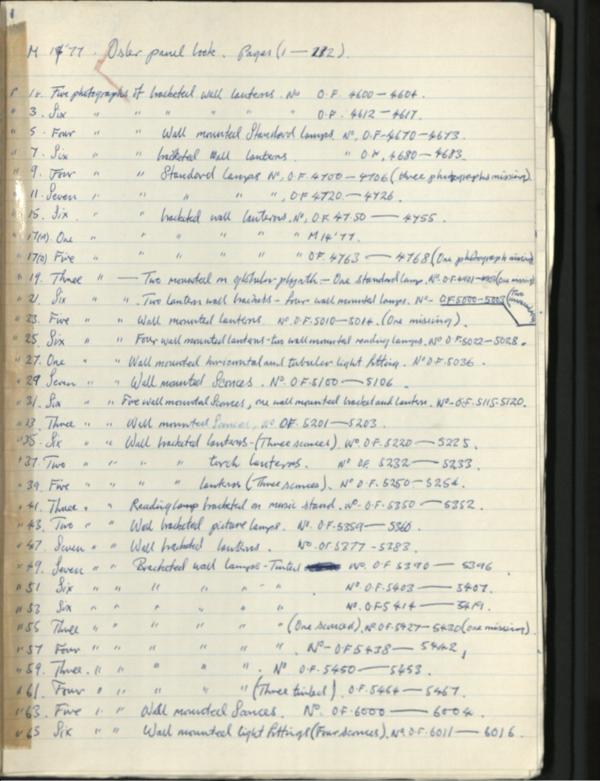 M 19'77. Osler panel book. Pages (1 — 282).
P 1. Five photographs of bracketed wall lanterns. No O.F. 4600 — 4604.
" 3. Six " " " " " O.F. 4612 — 4617.
" 5. Four " " Wall mounted Standard lamps No. O.F. 4670 — 4673.
" 7. Six " " bracketed Wall lanterns. " O.F. 4680 — 4683.
" 9. Four " " Standard lamps No. O.F. 4700 — 4706 (three photographs missing)
" 11. Seven " " " " ", O.F. 4720 — 4726.
" 15. Six " " bracketed wall lanterns. No. O.F. 4750 — 4755.
" 17(A). One " " " " " M 19'77.
" 17(B) Five " " " " " O.F. 4763 — 4768 (One photograph missing)
" 19. Three " — Two mounted on plynth — One standard lamp. No. O.F. (one missing)
" 21. Six " ". Two lantern wall brackets - four wall mounted lamps. No - O.F. 5000 - (Two
" 23. Five " " Wall mounted lanterns. No. O.F. 5010 — 5014. (One missing).
" 25. Six " " Four wall mounted lanterns - two wall mounted reading lamps. No O.F. 5022 — 5028.
" 27. One " " Wall mounted horizontal and tubular light fitting. No O.F. 5036.
" 29 Seven " " Wall mounted Sconces. No. O.F. 5100 — 5106.
" 31. Six " " Five wall mounted Sconces, one wall mounted bracket and lantern. No - O.F. 5115 - 5120.
" 33. Three " " Wall mounted Sconces, No OF. 5201 — 5203.
" 35. Six " " Wall bracketed lanterns - (Three sconces). No. O.F. 5220 — 5225.
" 37. Two " " " " torch lanterns. No OF. 5232 — 5233.
" 39. Five " " " " lanterns (Three sconces). No O.F. 5250 — 5254.
" 41. Three " " Reading lamp bracketed on music stand. No - O.F. 5350 — 5352.
" 43. Two " " Wall bracketed picture lamps. No. O.F. 5359 — 5360.
" 47. Seven " " Wall bracketed lanterns. No. OF 5377 - 5383.
" 49. Seven " " Bracketed wall lamps - Tinted No. O.F. 5390 — 5396
" 51 Six " " " " " " No. O.F. 5403 — 5407.
" 53 Six " " " " " No. O.F. 5414 — 5419.
" 55 Three " " " " " " (One sconce). No O.F. 5427 — 5430 (one missing).
" 57 Four " " " " " " No - O.F. 5438 — 5442,
" 59. Three. " " " " ". No O.F. 5450 — 5453.
" 61. Four " " " " " (Three tinted). O.F. 5464 — 5467.
" 63. Five " " Wall mounted Sconces. No. O.F. 6000 — 6004.
" 65 Six " " Wall mounted light fittings (Four sconces). No. O.F. 6011 — 6016.